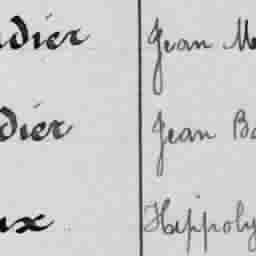 dier Jean M
dier Jean Ba
ux Hippoly